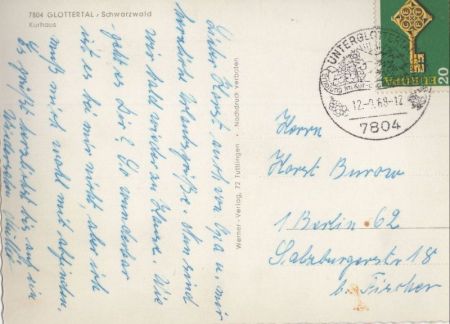 7804 GLOTTERTAL - Schwarzwald
Kurhaus
Lieber Horst auch von Opa u mir
herzliche Urlaubsgrüße. Nun sind
wir bald wieder zu Hause. Wie
geht es Dir? So wunderbar
ist es bei mir nicht, aber ich
muß mich wohl mit abfinden.
Es grüßt herzlichst bis auf ein
Wiedersehen
Werner-Verlag, 72 Tuttlingen · Nachdruck verboten
UNTERGLOTTERTAL
12.-9.68-12
7804
EUROPA
20
Herrn
Horst Burow
1 Berlin 62
Salzburgerstr 18
b. Fischer